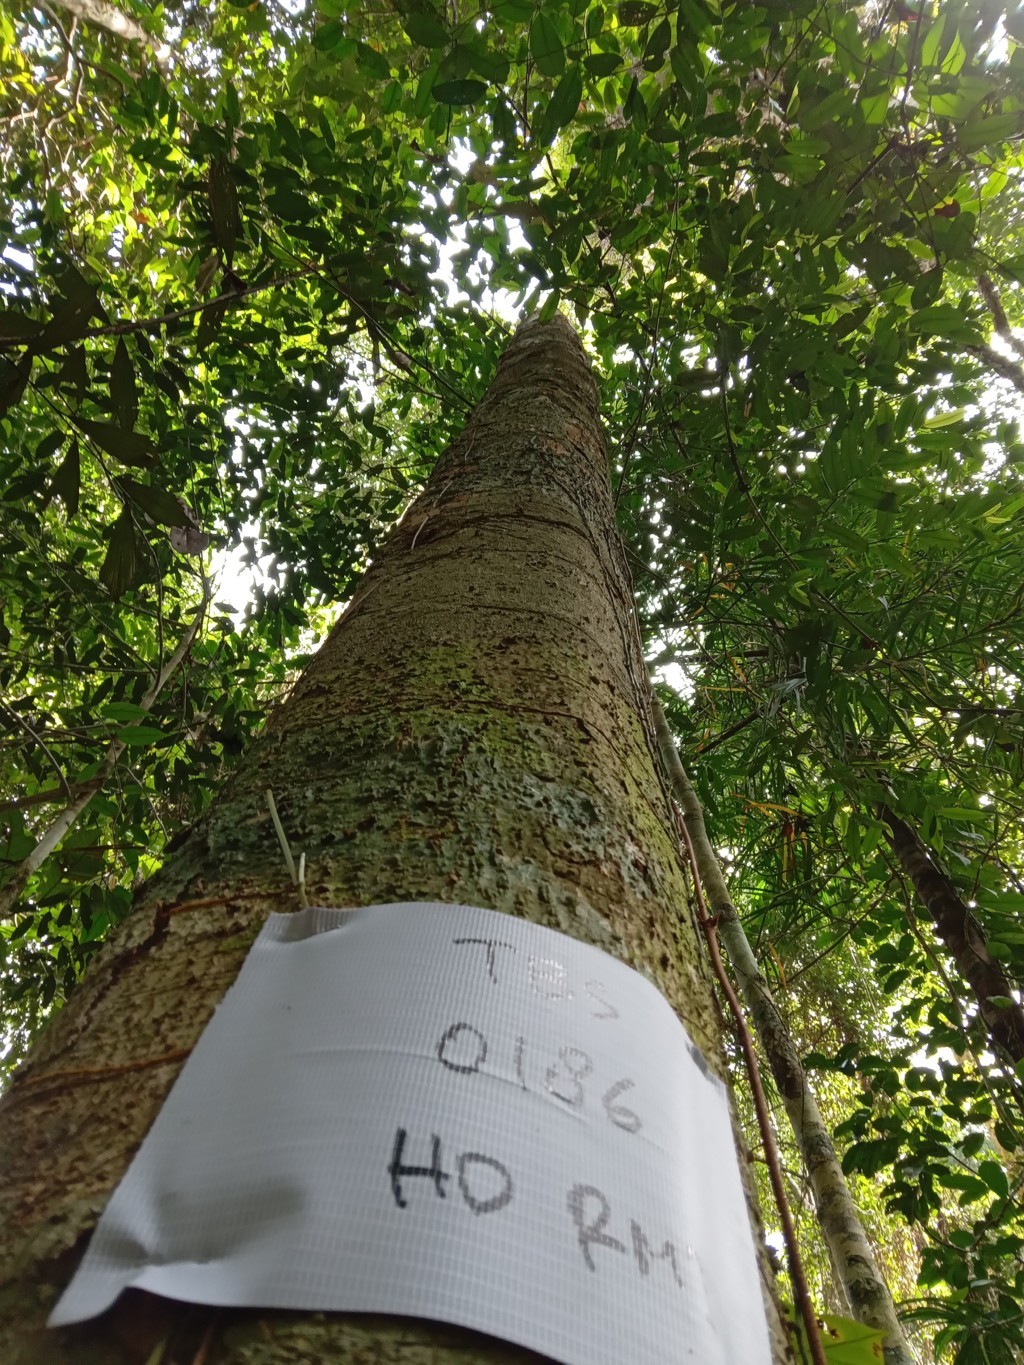 TBS
0186
HO RM